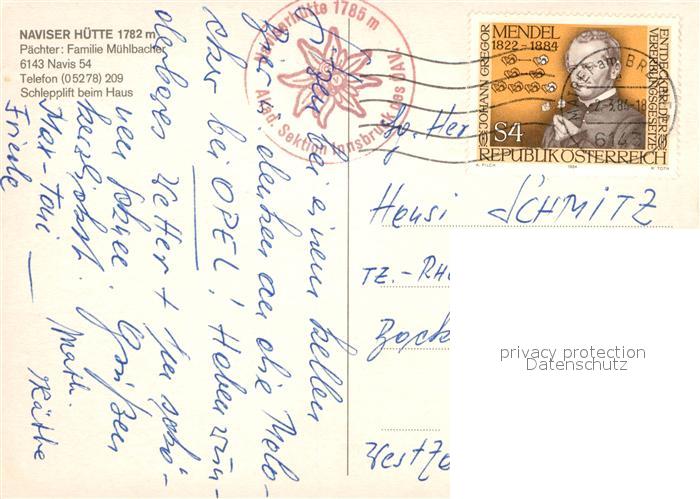 NAVISER HÜTTE 1782 m
Pächter: Familie Mühlbacher
6143 Navis 54
Telefon (05278) 209
Schlepplift beim Haus
Naviserhütte 1785 m
Akad. Sektion Innsbruck des ÖAV.
JOHANN GREGOR
MENDEL
1822-1884
ENTDECKER DER
VERERBUNGSGESETZE
S4
REPUBLIK ÖSTERREICH
A. PILCH
1984
W. TOTH
6143
Sitzen bei einem hellen
Bier & denken an die Kolo-
bei OPEL! Haben wun-
derbares Wetter + sehr schö-
nen Schnee. Grüßen
herzlichst.
Max - Toni
Math.
Friede
Käthe
Hansi SCHMITZ
TZ.-
privacy protection
Datenschutz